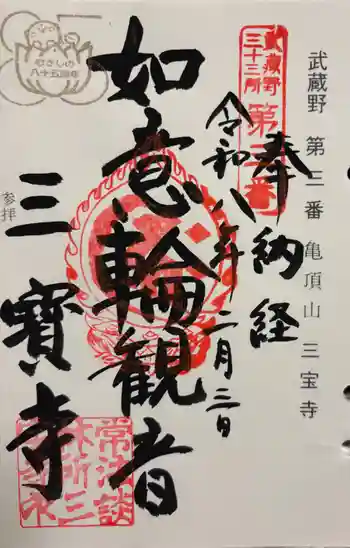 武蔵野 第三番 亀頂山 三宝寺
奉納経
武蔵野
三十三所
第三番
令和八年二月三日
如意輪観音
三寶寺
参拝
むさしの
八十五周年